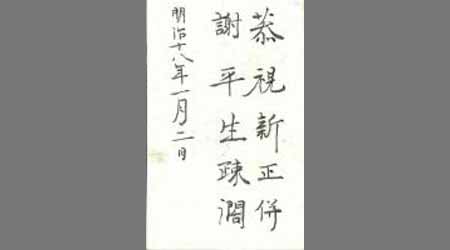 恭視新正併
謝平生疎濶
明治十八年一月二日